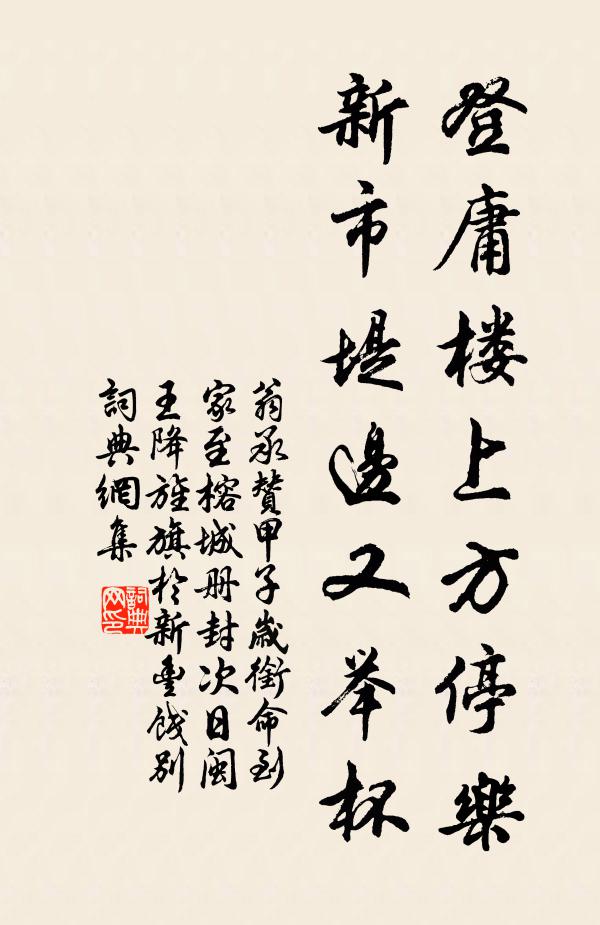 登庸楼上方停樂
新市堤邊又举杯
翁承赞甲子歲銜命到
家至榕城册封次日閩
王降旌旗於新豊餞别
詞典網集
詞典网印